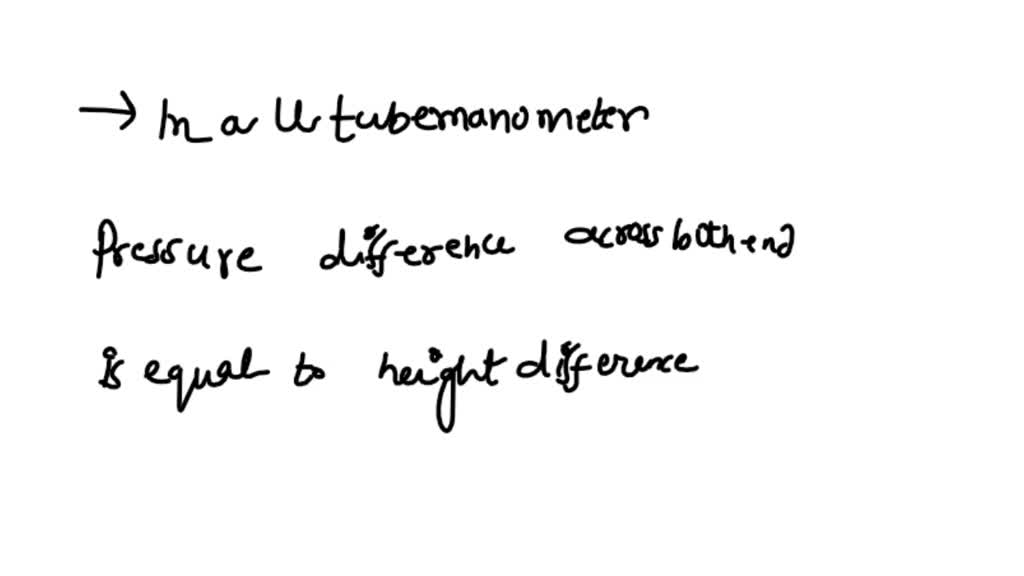 → In a U tubemanometer
Pressure difference across both end
is equal to height difference